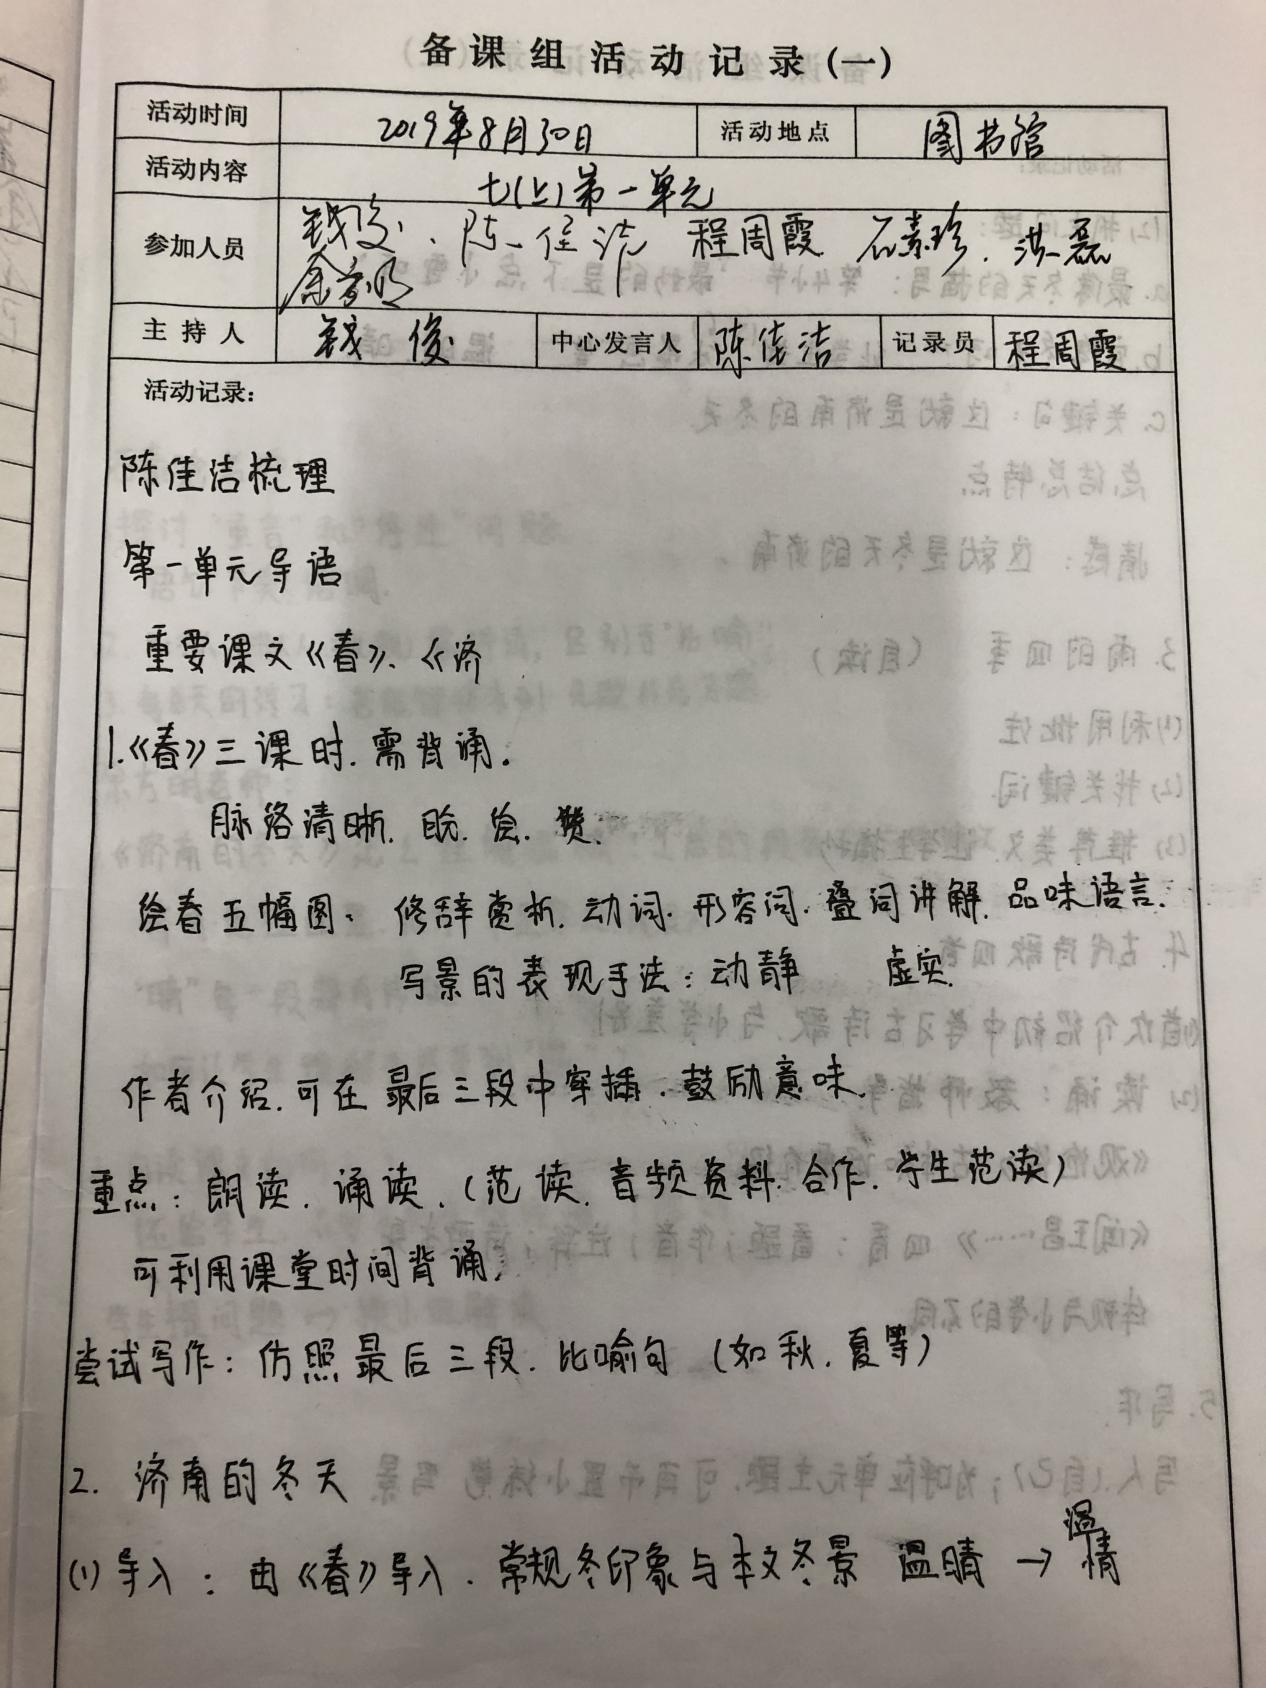 备课组活动记录(一)
活动时间 2019年8月30日 活动地点 图书馆
活动内容 七(上)第一单元
参加人员 钱俊、陈佳洁 程周霞 石素珍、洪磊
主持人 钱俊 中心发言人 陈佳洁 记录员 程周霞
活动记录:
陈佳洁梳理
第一单元导语
重要课文《春》、《济
1.《春》三课时.需背诵。
脉络清晰.盼.绘.赞.
绘春五幅图: 修辞赏析.动词.形容词.叠词讲解.品味语言.
写景的表现手法:动静 虚实.
作者介绍.可在最后三段中穿插.鼓励意味.
重点:朗读.诵读.(范读.音频资料.合作.学生范读)
可利用课堂时间背诵.
尝试写作:仿照最后三段.比喻句 (如秋.夏等)
2. 济南的冬天
(1)导入:由《春》导入.常规冬印象与本文冬景 温晴→温情